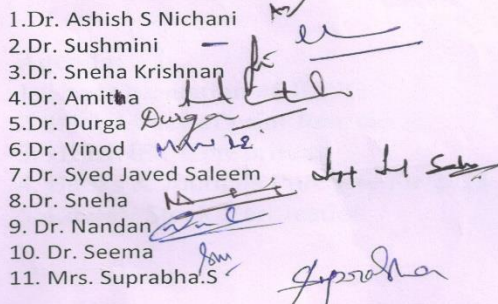 1.Dr. Ashish S Nichani
2.Dr. Sushmini
3.Dr. Sneha Krishnan
4.Dr. Amitha
5.Dr. Durga Durga
6.Dr. Vinod
7.Dr. Syed Javed Saleem
8.Dr. Sneha
9. Dr. Nandan
10. Dr. Seema
11. Mrs. Suprabha.S Suprabha